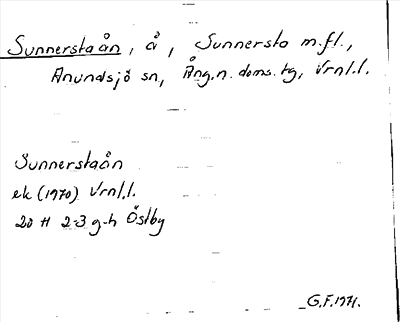 Sunnerstaån, å, Sunnersta m.fl.,
Anundsjö sn, Ång.n.doms.tg, Vrnl.l.
Sunnerstaån
ek (1970) Vrnl.l.
20 H 2-3 g-h Östby
G.F. 1971.